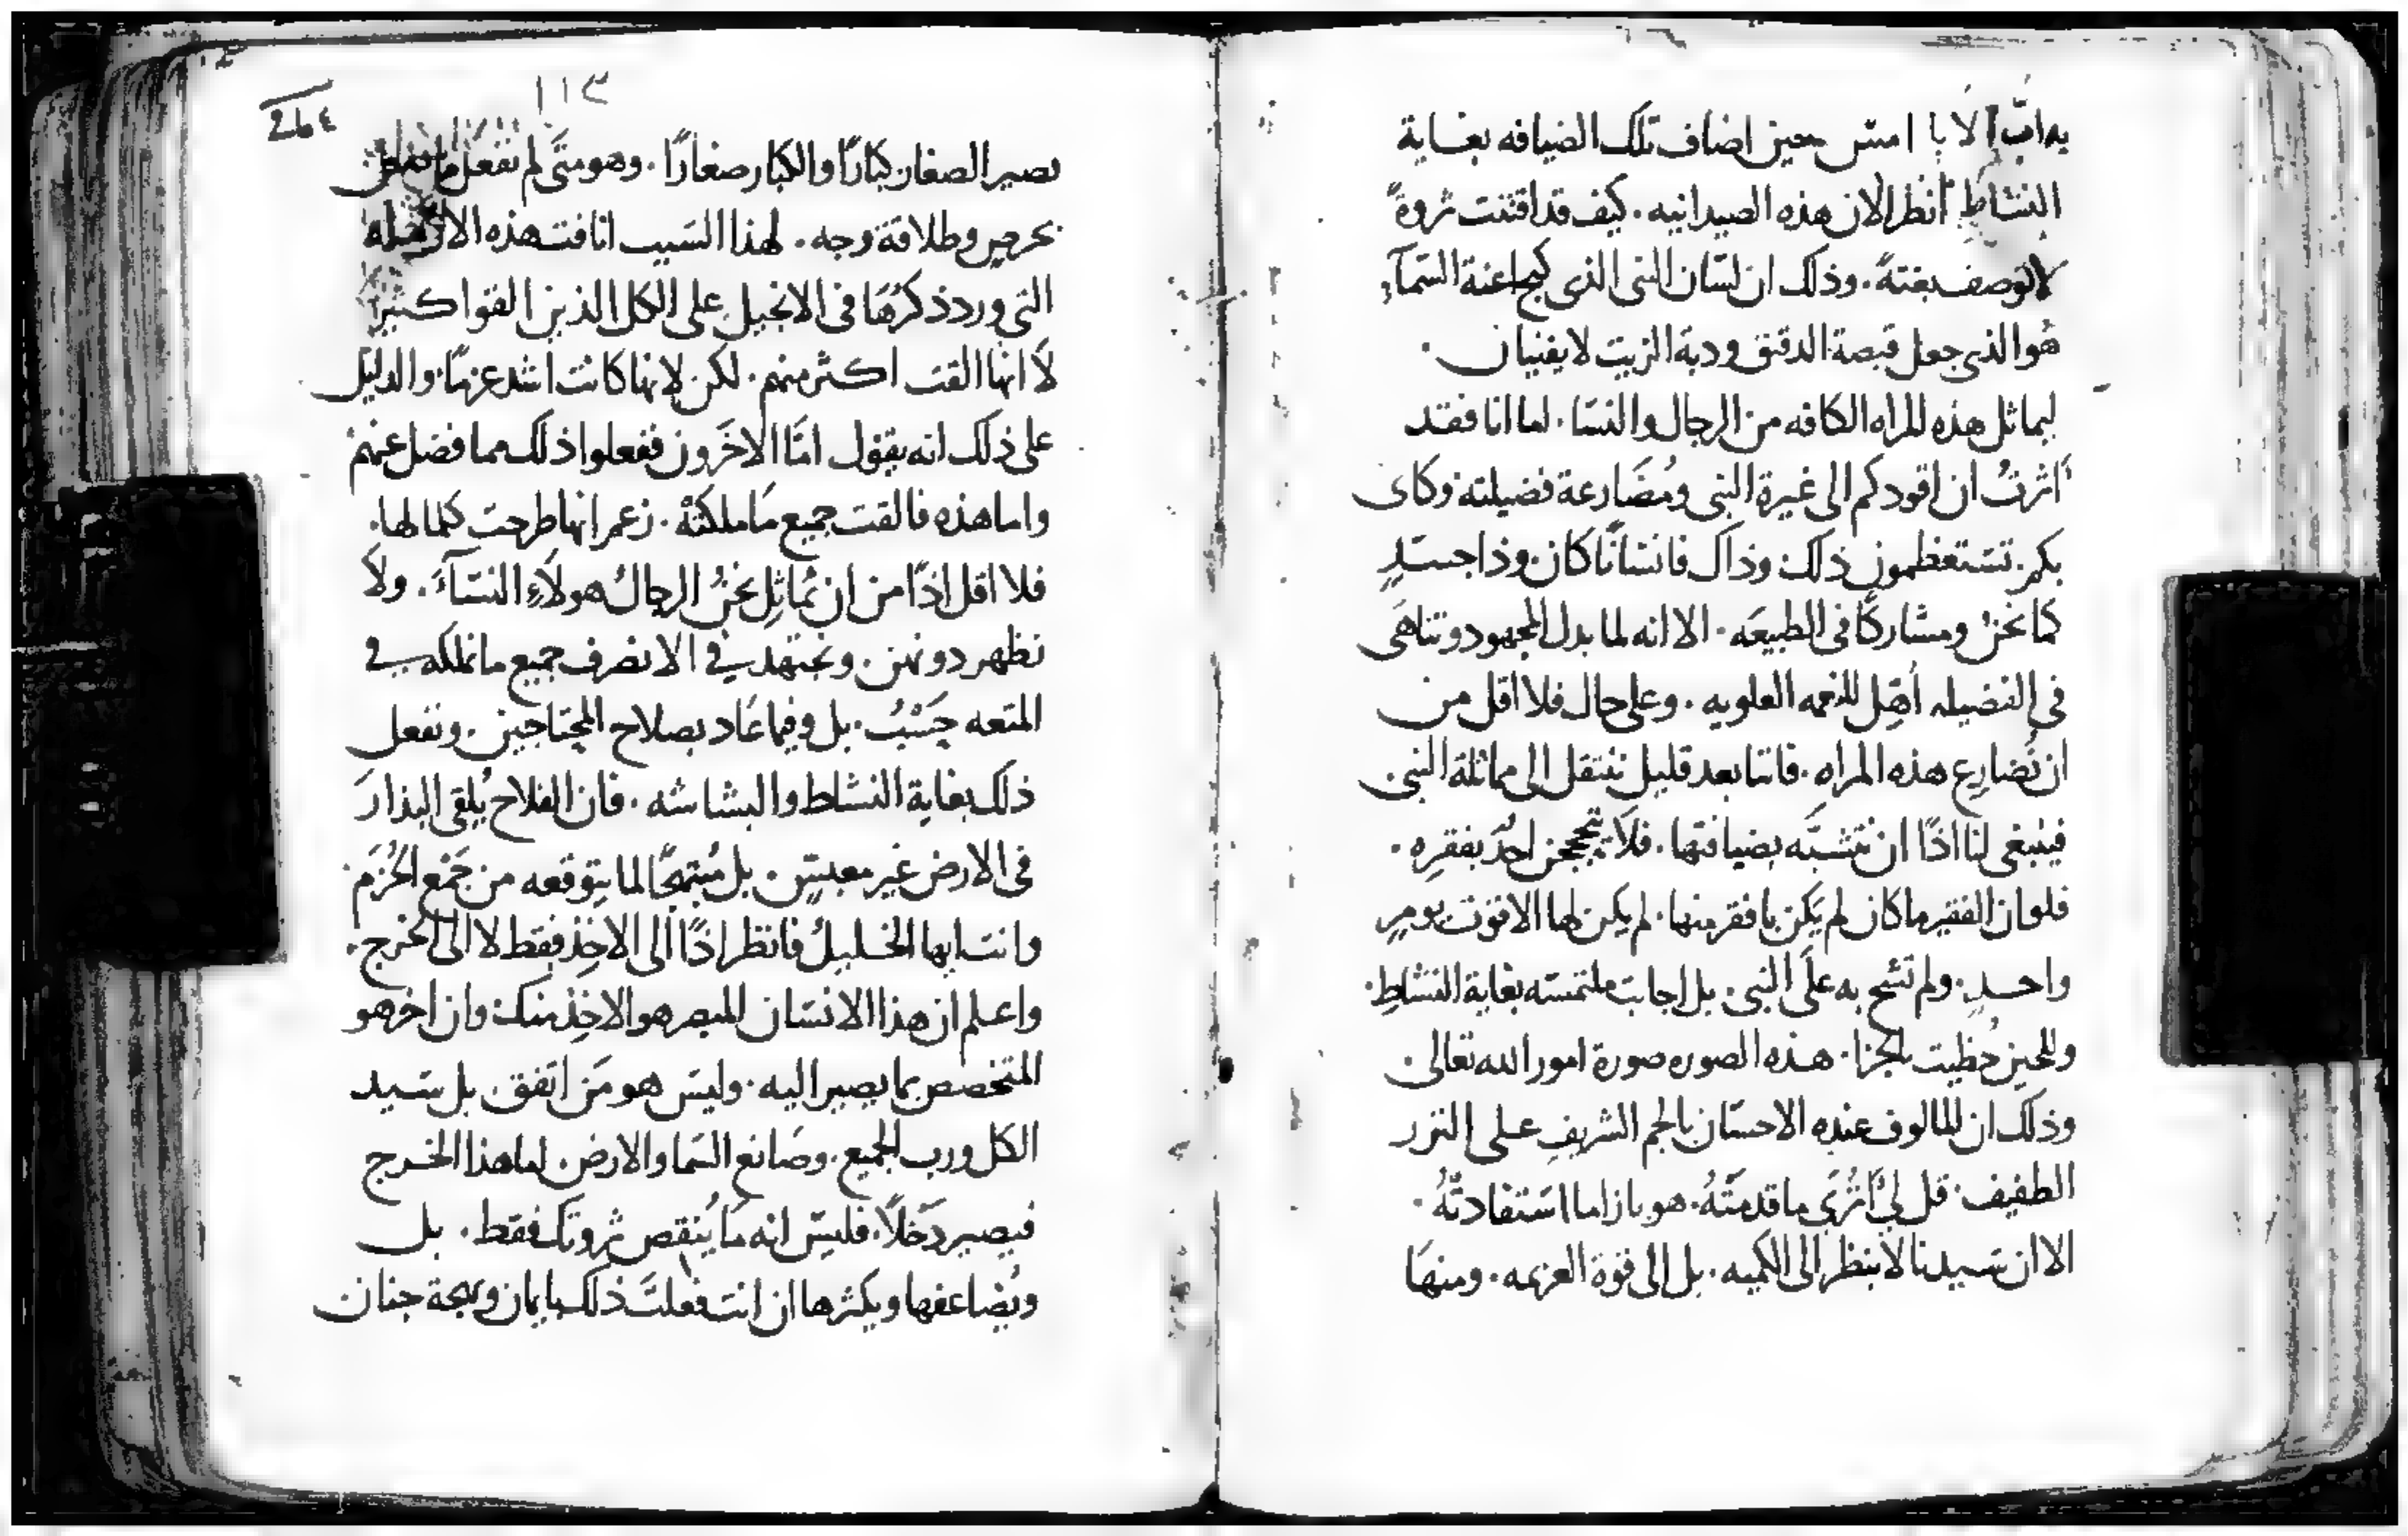 به اب الابا امس حين اضاف تلك الضيافه بغاية
النشاط انظر الان هذه الصيدانيه. كيف قد اقتنت ثروةً
لا توصف بغتةً. وذلك ان لسان النبي الذي كبح اعنة السمآءِ
هُوا لذي جعل قبصة الدقيق ودبة الزيت لا يفنيان.
ليماثل هذه المراه الكافه من الرجال والنسا. اما انا فقد
اثرتُ ان اقودكم الى غيرة النبي ومُضَارعة فضيلته وكاى
بكم تستعظمون ذلك وذاك فانسانًا كان وذا جسَدٍ
كما نحنُ ومشاركًا في الطبيعَه. الا انه لما بدل المجهود وتناهَى
في الفضيله أهِّل للنعمه العلويه. وعلى حال فلا اقل من
ان نُضارِع هذه المراه. فاننا بعد قليل ننتقل الى مماثلة النبي
فينبغي لنا اذًا ان نتشبَّه بضيافتها. فلا يحتججن احدٌ بفقرِه.
فلو ان الفقير ما كان لم يكن بافقر منها. لم يكن لها الا قوت يومٍ
واحدٍ. ولم تشح به علَى النبي. بل اجابت ملتمسه بغاية النشاطِ.
وللحين حُظيت بالجزا. هذه الصوره صورة امور الله تعالى
وذلك ان المالوف عنده الاحسان بالجم الشريف على النزر
الطفيف. قل لي أتُرَى ما قدمَتهُ. هو بازا ما استفادتْهُ.
الا ان سيدنا لا ينظر الى الكميه. بل الى قوة العزيمه. ومنهَا
١١٣
264
تصير الصغار كبارًا والكبار صغارًا. وهو متَى لم نفعل ما نفعل
بحرصٍ وطلاقة وجه. لهذا السَبب انافت هذه الارمله
التي ورد ذكرُهَا في الانجيل على الكل الذين القوا كثيرًا
لاَ انها القت اكثر منهم. لكن لانها كانت اشد عزمًا. والدليل
على ذلك انه يقول امَّا الاخَرون ففعلوا ذلك مما فضل عنهمُ
واما هذه فالقت جميع مَا ملكتْهُ. زعم انها طرحت كلما لها.
فلا اقل اذًا من ان نُماثِل نحنُ الرجالُ هولآءِ النسَآءَ. ولاَ
نظهر دونهن. ونجتهد في الا نصرف جميع ما نملكه في
المتعه حَسْبُ. بل وفيما عَاد بصلاح المحتاجين. ونفعل
ذلك بغاية النشاط والبشاشه. فان الفلاح يُلقي البذارَ
في الارض غير معبسٍ. بل مُبتهجًا لما يتوقعه من جَمْع الحُزَم.
وانت ايها الخليلُ فانظر اذًا الى الاخِذ فقط لا الى الخرج.
واعلم ان هذا الانسَان المبصر هو الاخِذ منك وان اخر هو
المتخصص بما يصير اليه. وليس هو مَن اتفق بل سَيد
الكل ورب الجميع. وصَانع السَما والارض. اما هذا الخرج
فيصير دَخلاً. فليسَ انه مَا يُنقص ثروتك فقط. بل
ويُضاعفها ويكثرها ان انت فعلتَ ذلك بايمان وبهجة جنان